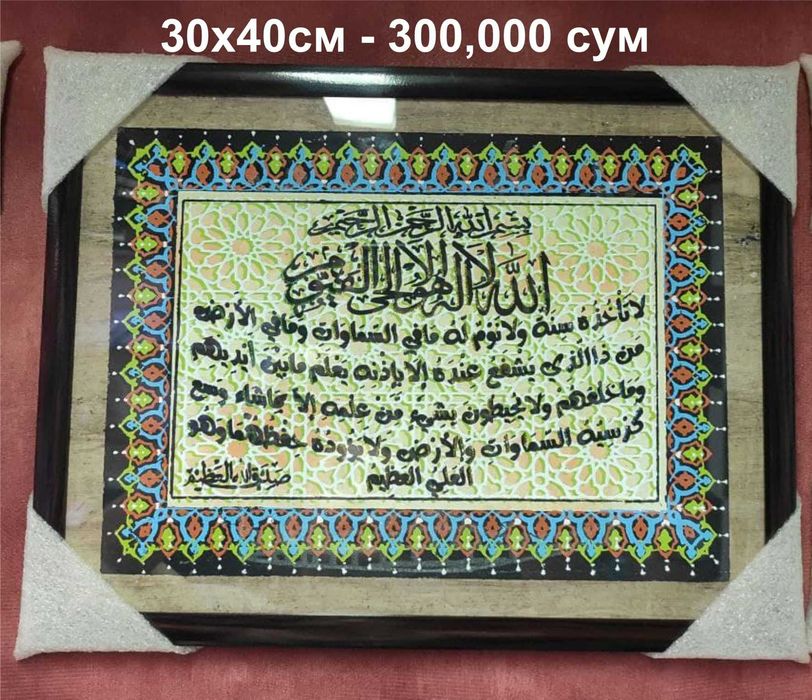 30х40см - 300,000 сум
بسم الله الرحمن الرحيم
الله لا إله إلا هو الحي القيوم
لا تأخذه سنة ولا نوم له ما في السماوات وما في الأرض
من ذا الذي يشفع عنده إلا بإذنه يعلم ما بين أيديهم
وما خلفهم ولا يحيطون بشيء من علمه إلا بما شاء وسع
كرسيه السماوات والأرض ولا يؤوده حفظهما وهو
العلي العظيم
صدق الله العظيم